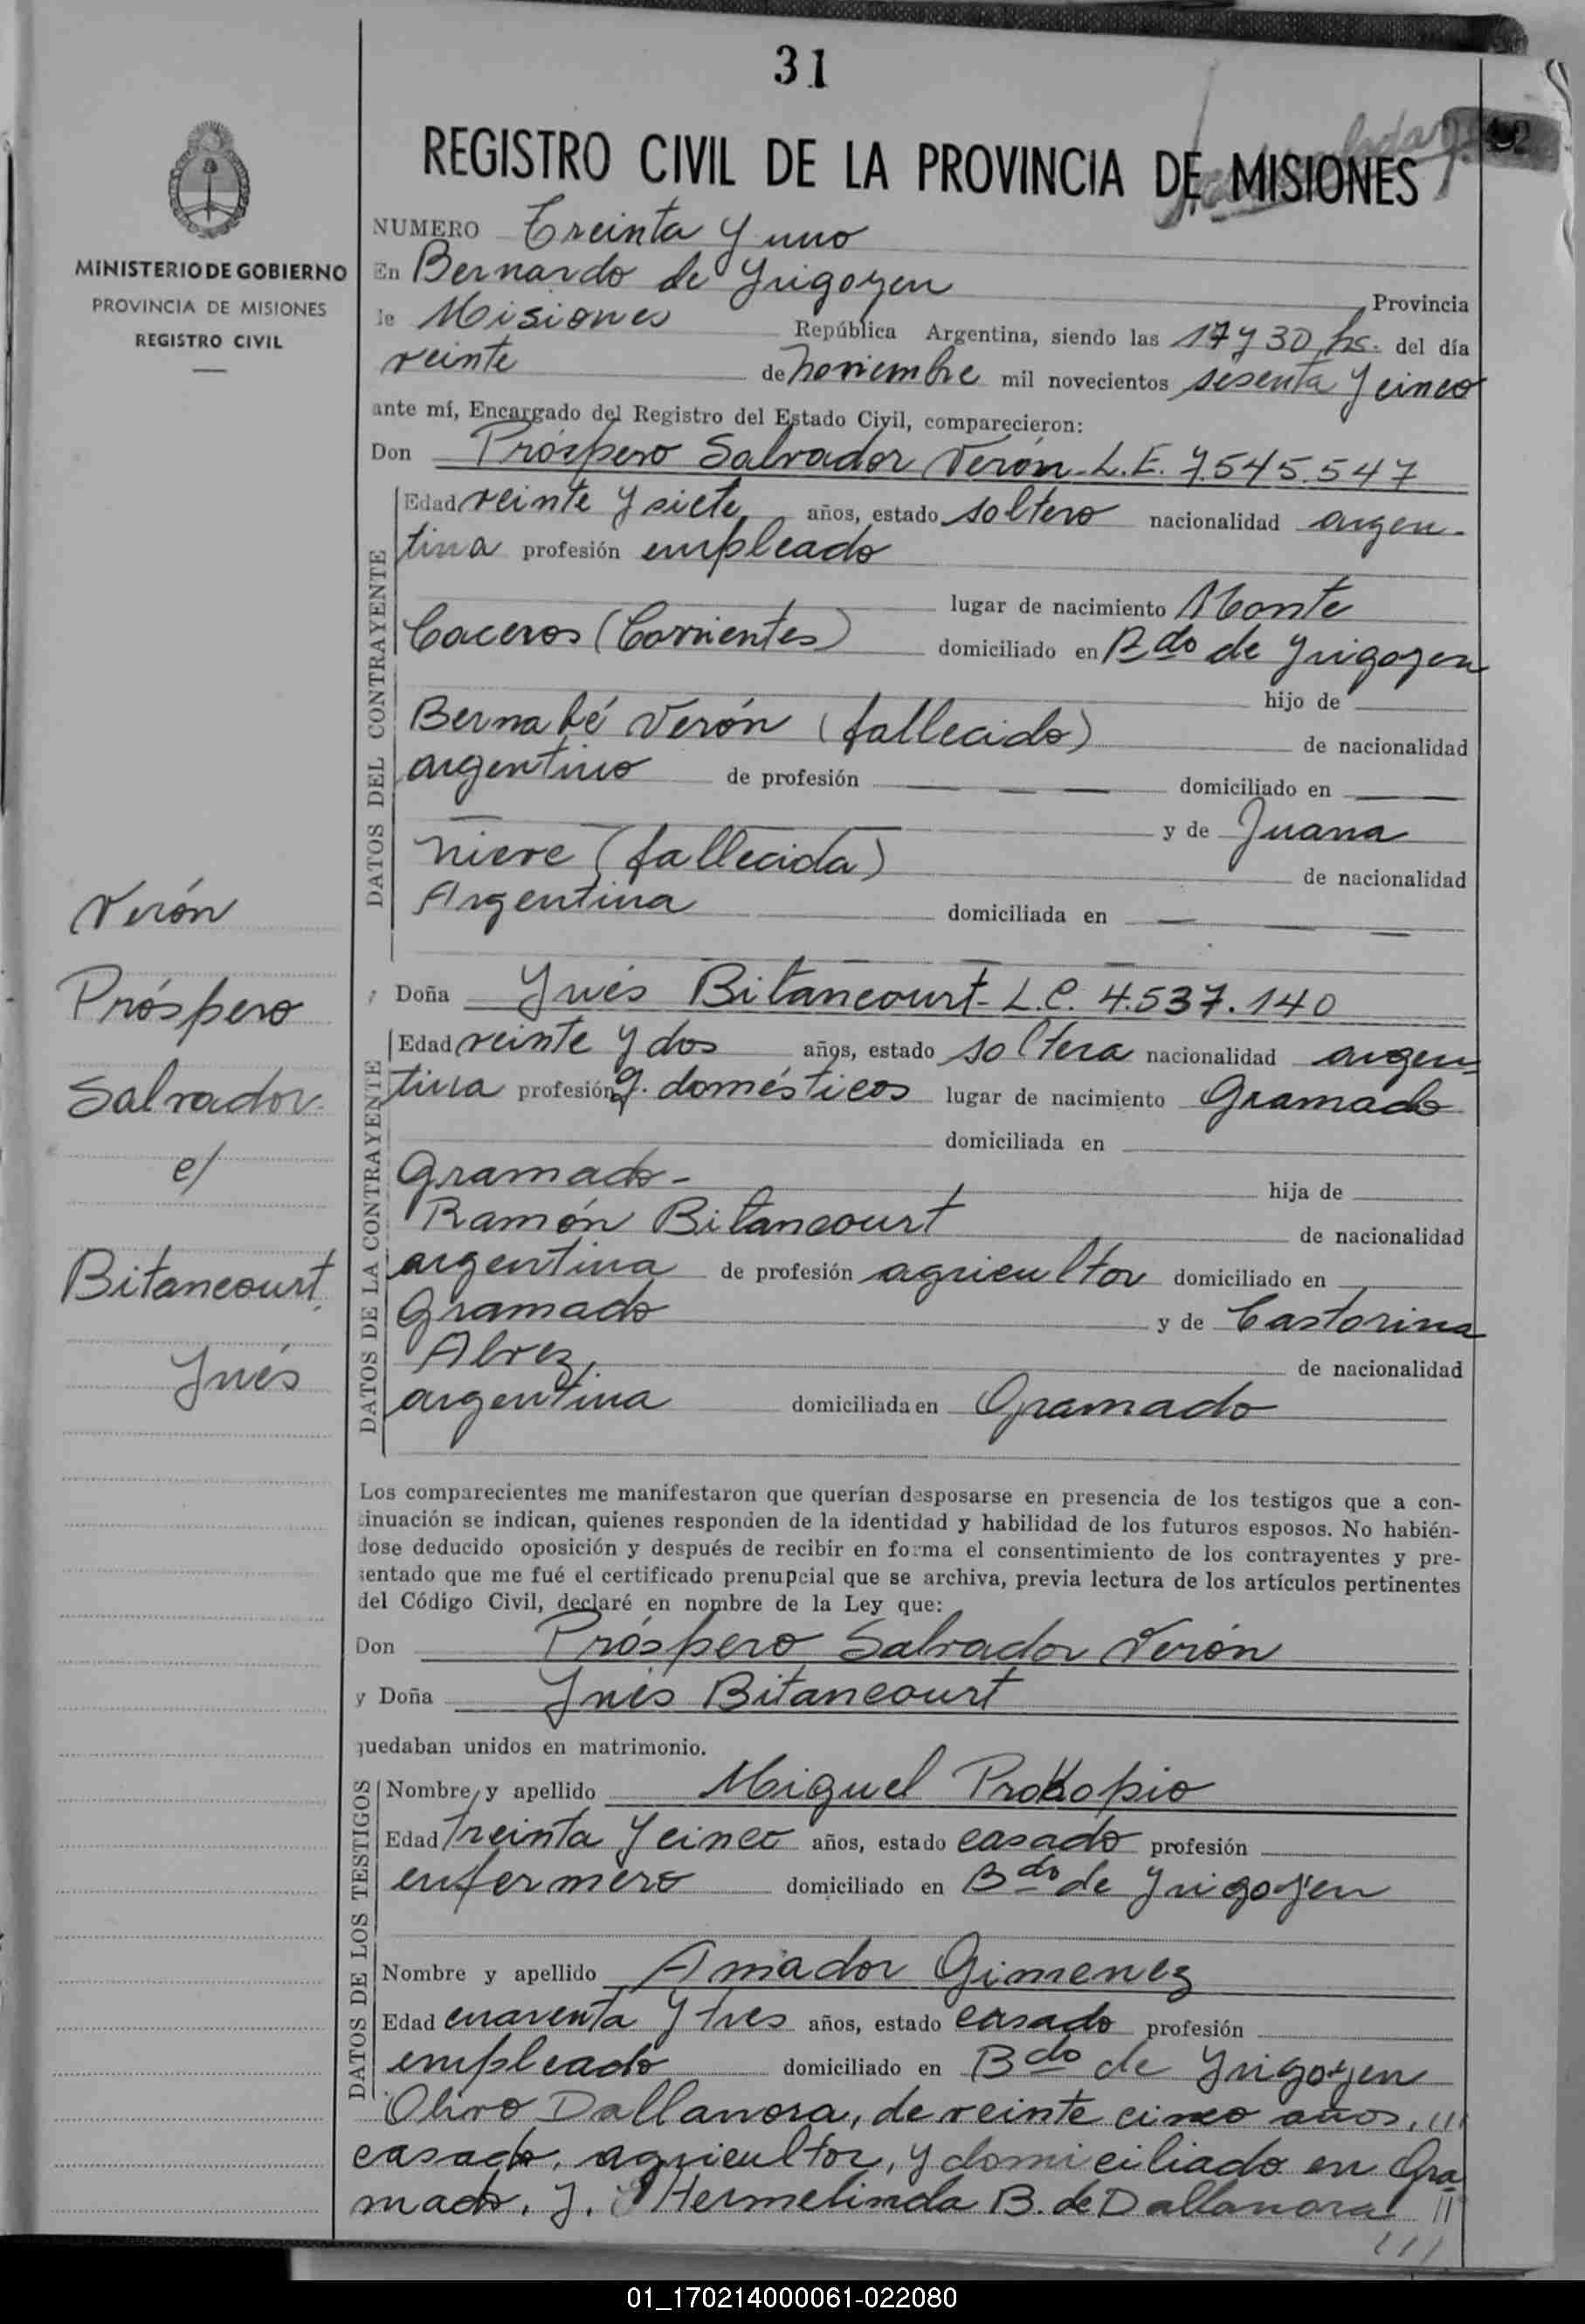 31
REGISTRO CIVIL DE LA PROVINCIA DE MISIONES
MINISTERIO DE GOBIERNO
PROVINCIA DE MISIONES
REGISTRO CIVIL
NUMERO Treinta y uno
En Bernardo de Yrigoyen Provincia
de Misiones República Argentina, siendo las 17 y 30 hs. del día
veinte de noviembre mil novecientos sesenta y cinco
ante mí, Encargado del Registro del Estado Civil, comparecieron:
Don Próspero Salvador Verón - L.E. 7.545.547
Edad veinte y siete años, estado soltero nacionalidad argen-
tina profesión empleado
lugar de nacimiento Monte
Caceros (Corrientes) domiciliado en Bdo de Yrigoyen
hijo de
Bernabé Verón (fallecido) de nacionalidad
argentino de profesión — — — domiciliado en —
y de Juana
Nieve (fallecida) de nacionalidad
Argentina domiciliada en — — —
DATOS DEL CONTRAYENTE
Doña Ynés Bitancourt - L.C. 4.537.140
Edad veinte y dos años, estado soltera nacionalidad argen-
tina profesión q. domésticos lugar de nacimiento Gramado
domiciliada en
Gramado - hija de
Ramón Bitancourt de nacionalidad
argentina de profesión agricultor domiciliado en
Gramado y de Castorina
Alvez, de nacionalidad
argentina domiciliada en Gramado
DATOS DE LA CONTRAYENTE
Verón
Próspero
Salvador
c/
Bitancourt,
Ynés
Los comparecientes me manifestaron que querían desposarse en presencia de los testigos que a con-
tinuación se indican, quienes responden de la identidad y habilidad de los futuros esposos. No habién-
dose deducido oposición y después de recibir en forma el consentimiento de los contrayentes y pre-
sentado que me fué el certificado prenupcial que se archiva, previa lectura de los artículos pertinentes
del Código Civil, declaré en nombre de la Ley que:
Don Próspero Salvador Verón
y Doña Ynés Bitancourt
quedaban unidos en matrimonio.
Nombre y apellido Miguel Prokopio
Edad treinta y cinco años, estado casado profesión
enfermero domiciliado en Bdo de Yrigoyen
Nombre y apellido Amador Gimenez
Edad cuarenta y tres años, estado casado profesión
empleado domiciliado en Bdo de Yrigoyen
DATOS DE LOS TESTIGOS
Olivo Dallanora, de veinte cinco años, ///
casado, agricultor, y domiciliado en Gra-
mado. y. Hermelinda B. de Dallanora //
///
01_170214000061-022080